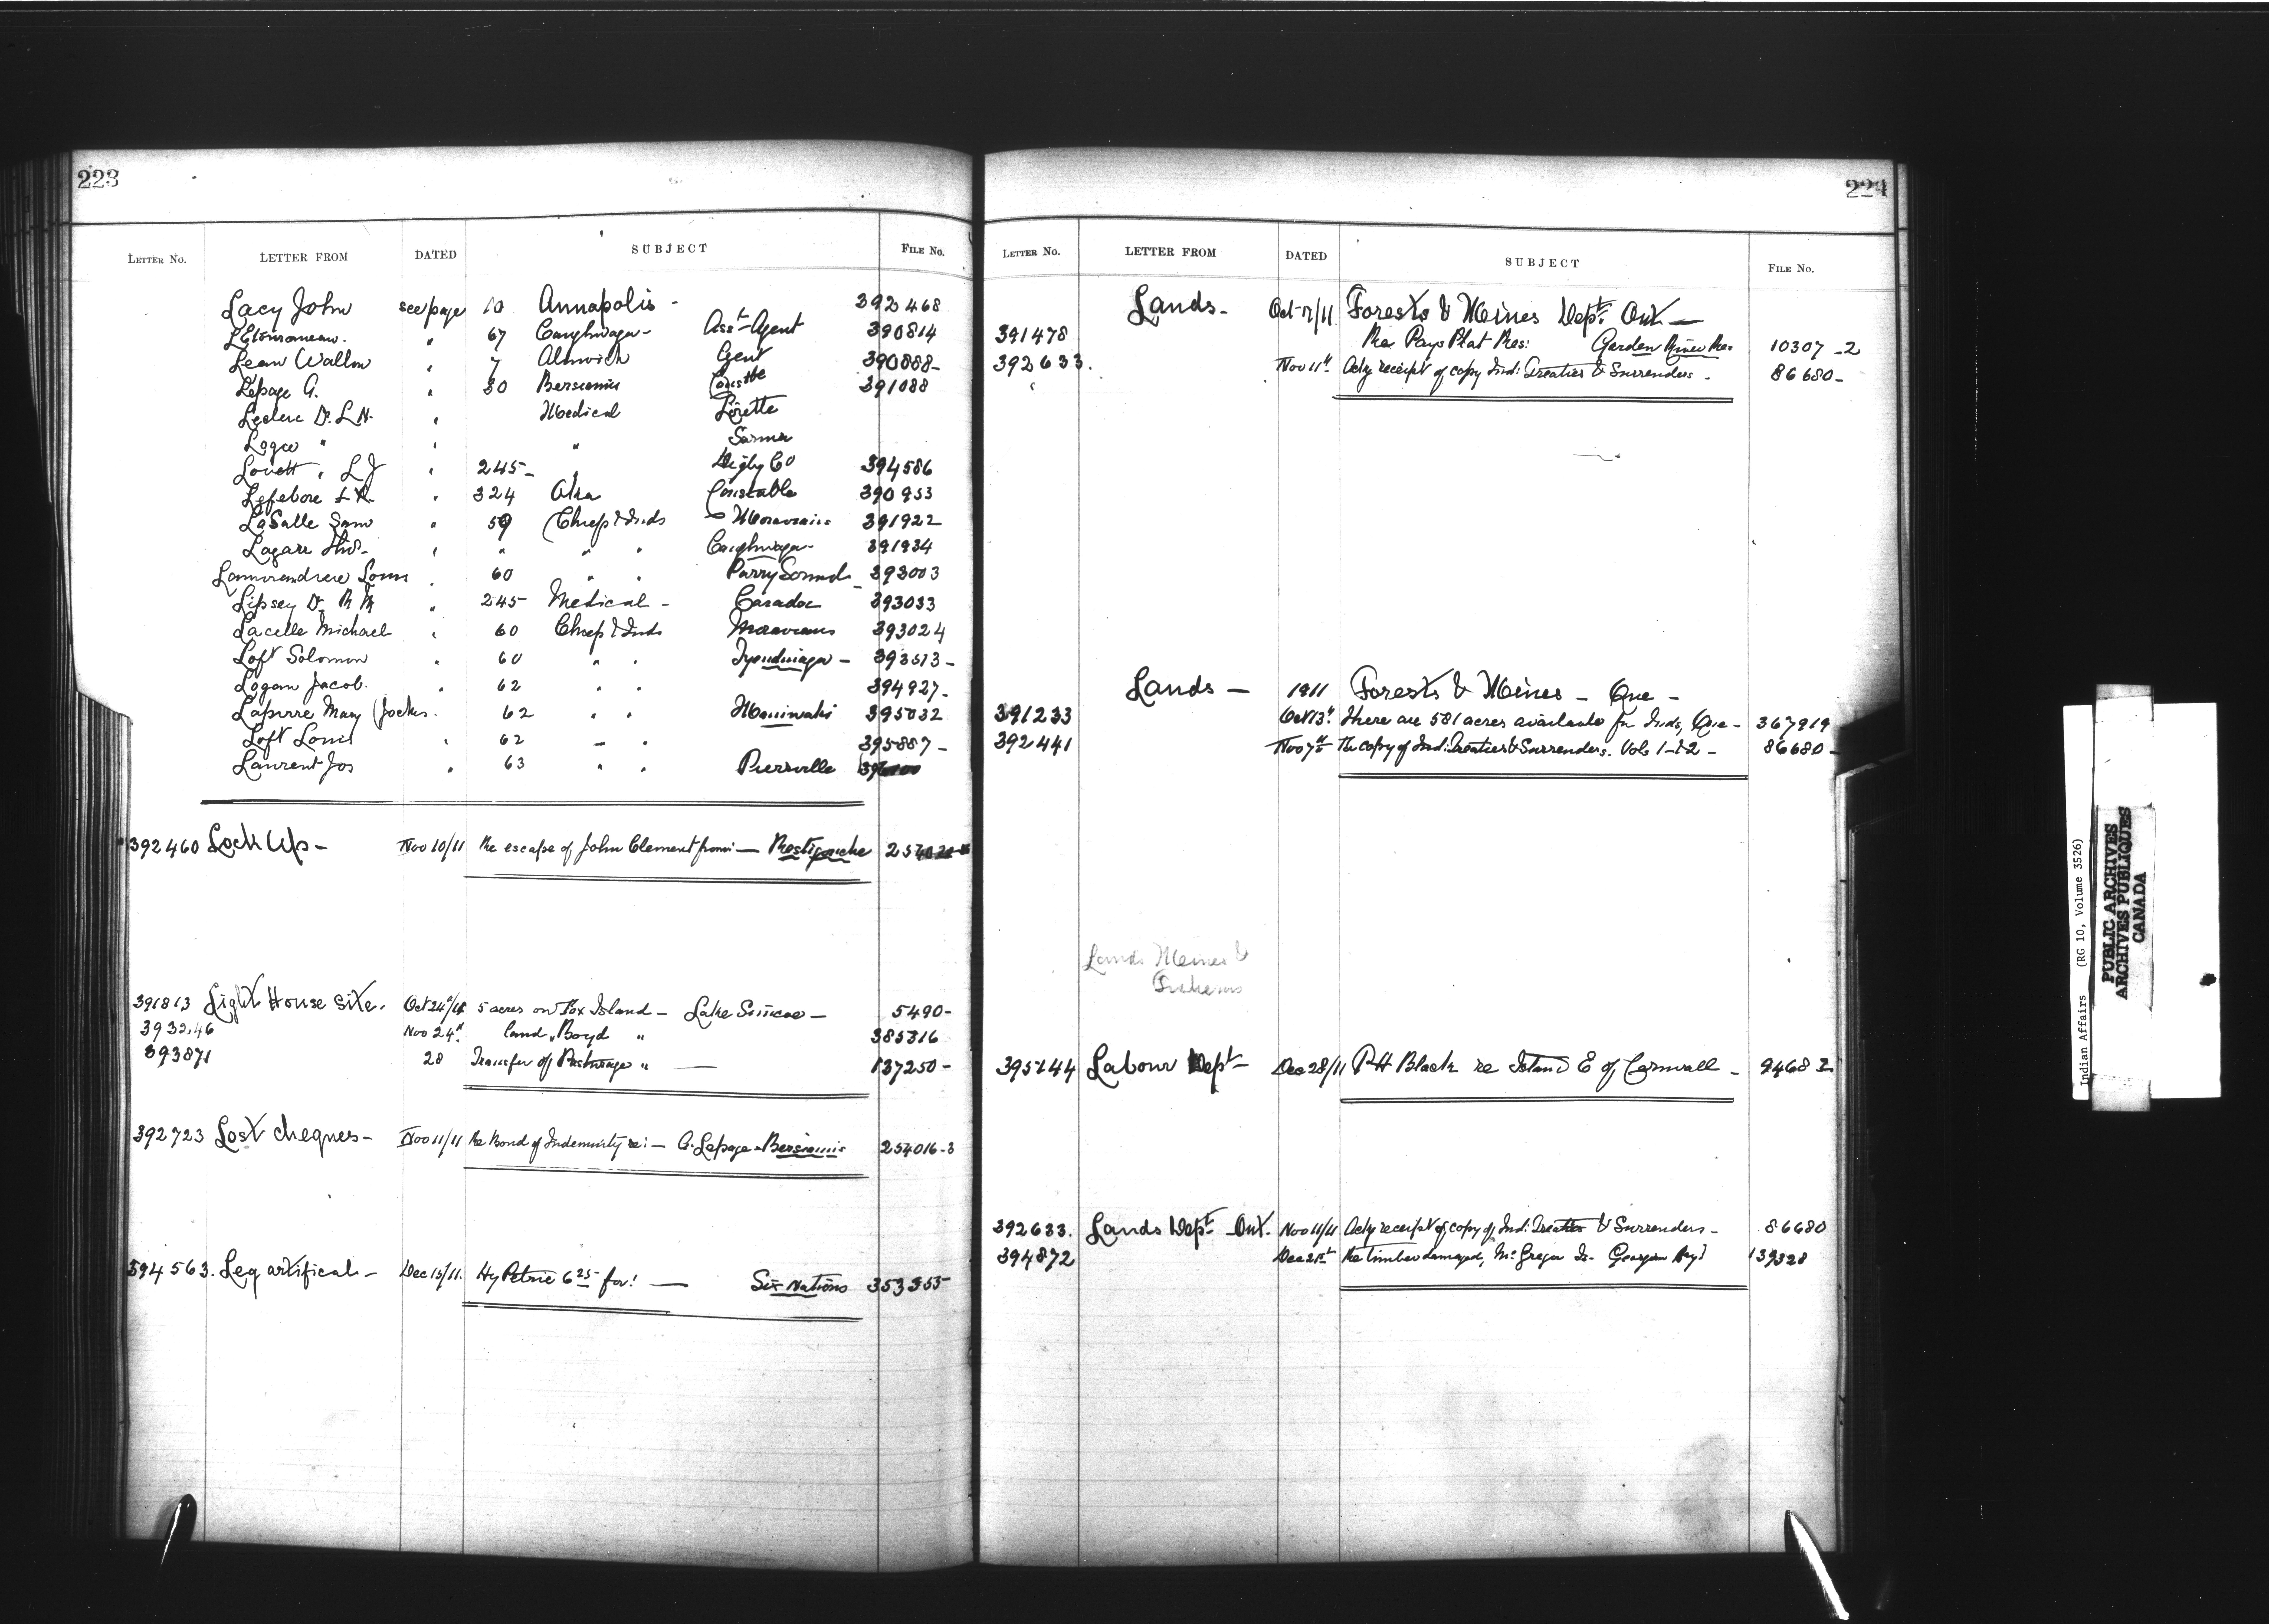 223
LETTER NO. LETTER FROM DATED SUBJECT FILE NO.
Lacy John see page 10 Annapolis - 392468
" 67 Caughnaga - Asst Agent 390814
Lean Wallon " 7 Alnwich Gent 390888 -
Lepage A. " 30 Bersimis Constble 391088
Leclerc Dr. L.N. " Medical Lorette
Logie " " " Sarnia
Lovett " L J " 245 - " Digby Co 394586
Lefebvre " 324 Oka Constable 390953
LaSalle Sam " 59 Chiefs & Inds - Moravians 391922
Lazare Thos - " " " " Caughnaga - 391934
Lamorandiere Louis " 60 " " Parry Sound - 393003
Lipsey Dr. R M " 245 Medical - Caradoc 393033
Lacelle Michael " 60 Chiefs & Inds Moravians 393024
Loft Solomon " 60 " " Tyendinaga - 393513 -
Logan Jacob. " 62 " " 394927 -
Lapierre Mary (Jocks. 62 " " Maniwaki 395032
Loft Louis " 62 " " 395887 -
Laurent Jos " 63 " " Pierreville
392460 Lock Up - Nov 10/11 Re escape of John Clement from - Restigouche
391813 Light House Site. Oct 24th/11 5 acres on Fox Island - Lake Simcoe - 5490 -
393246 Nov 24th land " Boyd " 385316
393871 28 Transfer of Pasturage " — 137250 -
392723 Lost cheques - Nov 11/11 Re Bond of Indemnity re: - A. Lepage - Bersimis 254016-3
394563. Leg artifical - Dec 15/11. Hy Petrie 6 25 for: — Six Nations 353355
224
LETTER NO. LETTER FROM DATED SUBJECT FILE NO.
Lands - Oct 17/11 Forests & Mines Dept. Ont -
391478 Re Pays Plat Res: Garden River Res 10307-2
392633. Nov 11th Ackg receipt of copy Ind: Treaties & Surrenders - 86680 -
Lands - 1911 Forests & Mines - Que -
391233 Oct 13th There are 581 acres available for Inds, Que - 367919
392441 Nov 7th Re copy of Ind: Treaties & Surrenders. Vols 1 - & 2 - 86680 -
Lands Mines &
Fisheries
395244 Labour Dept - Dec 28/11 P H Black re Island E of Cornwall - 94682
392633. Lands Dept - Ont. Nov 11/11 Ackg receipt of copy of Ind: Treaties & Surrenders - 86680
394872 Dec 21st Re timber damaged, McGregor Is - Georgian Bay 139328
Indian Affairs (RG 10, Volume 3526)
PUBLIC ARCHIVES
ARCHIVES PUBLIQUES
CANADA